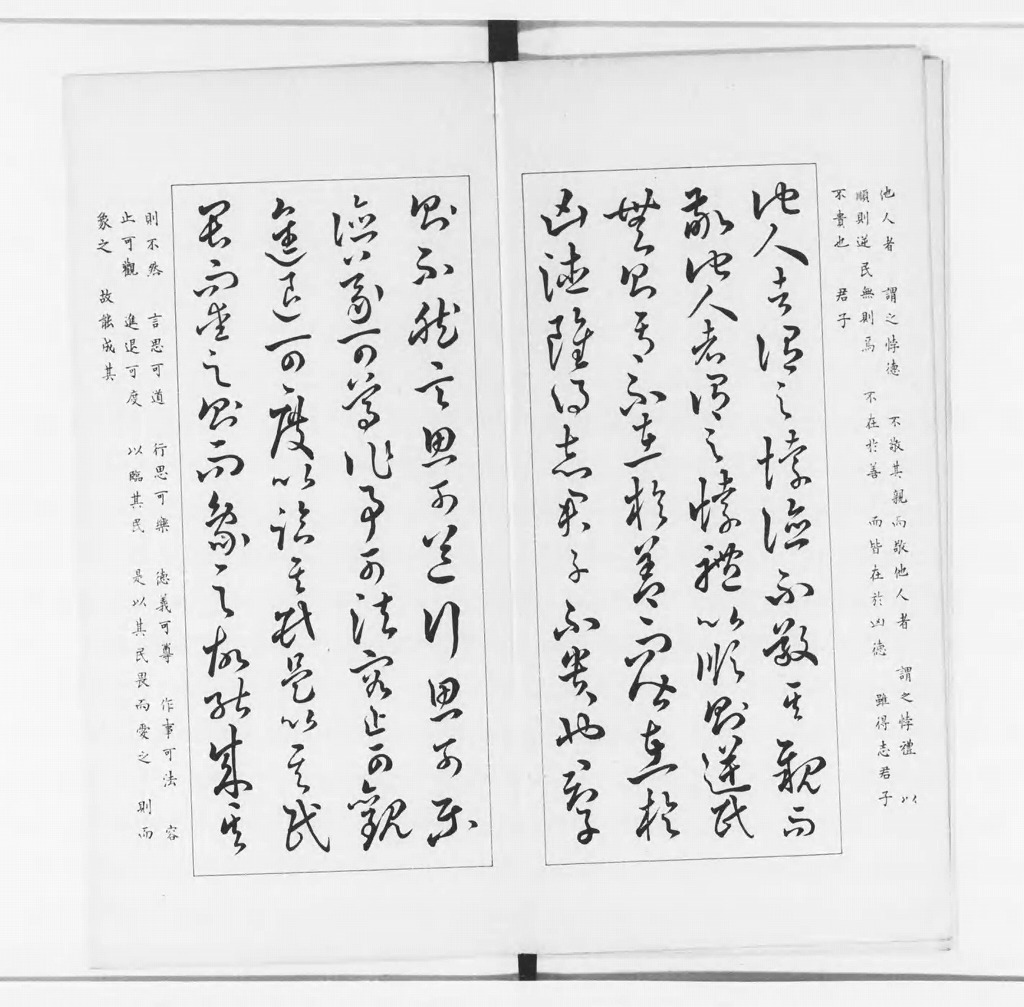 他人者 謂之悖德 不敬其親而敬他人者 謂之悖禮 以
順則逆 民無則焉 不在於善 而皆在於凶德 雖得志君子
不貴也 君子
他人者謂之悖德不敬其親而
敬他人者謂之悖禮以順則逆民
無則焉不在於善而皆在於
凶德雖得志君子不貴也君子
則不然言思可道行思可樂
德義可尊作事可法容止可觀
進退可度以臨其民是以其民
畏而愛之則而象之故能成其
則不然 言思可道 行思可樂 德義可尊 作事可法 容
止可觀 進退可度 以臨其民 是以其民畏而愛之 則而
象之 故能成其